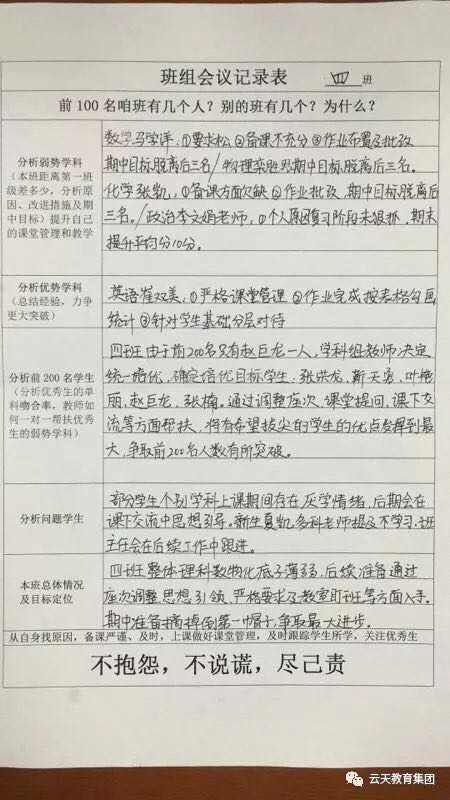 班组会议记录表 四 班
前100名咱班有几个人？别的班有几个？为什么？
分析弱势学科
（本班距离第一班
级差多少，分析原
因、改进措施及期
中目标）提升自己
的课堂管理和教学
数学马学洋：①要求松，②备课不充分 ③作业布置及批改
期中目标脱离后三名／物理栾胜男期中目标脱离后三名。
化学张凯：①备课方面欠缺 ②作业批改，期中目标，脱离后
三名。／政治李文娟老师：①个人原因复习阶段未狠抓，期末
提升平均分10分。
分析优势学科
（总结经验，力争
更大突破）
英语崔双美：①严格课堂管理 ②作业完成按表格勾画
统计 ③针对学生基础分层对待
分析前200名学生
（分析优秀生的单
科吻合率，教师如
何一对一帮扶优秀
生的弱势学科）
四班由于前200名只有赵巨龙一人，学科组教师决定
统一培优，确定培优目标学生：张洪龙、靳天宪、叶艳
丽、赵巨龙、张楠。通过调整座次、课堂提问，课下交
流等方面帮扶，将有希望拔尖的学生的优点发挥到最
大，争取前200名人数有所突破。
分析问题学生
部分学生个别学科上课期间存在厌学情绪，后期会在
课下交流中思想引导。新生夏凯，多科老师提及不学习，班
主任会在后续工作中跟进。
本班总体情况
及目标定位
四班整体理科数物化底子薄弱，后续准备通过
座次调整、思想引领、严格要求及教室盯班等方面入手。
期中准备摘掉倒第一帽子，争取最大进步。
从自身找原因，备课严谨、及时，上课做好课堂管理，及时跟踪学生所学，关注优秀生
不抱怨，不说谎，尽己责
云天教育集团